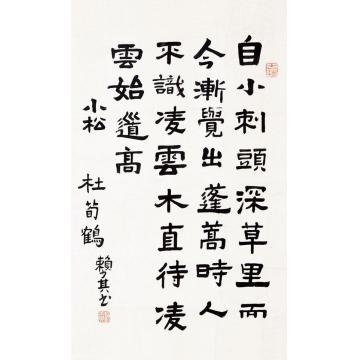 自小刺頭深草里而
今漸覺出蓬蒿時人
不識凌雲木直待凌
雲始道高
小松 杜荀鶴 賴少其书